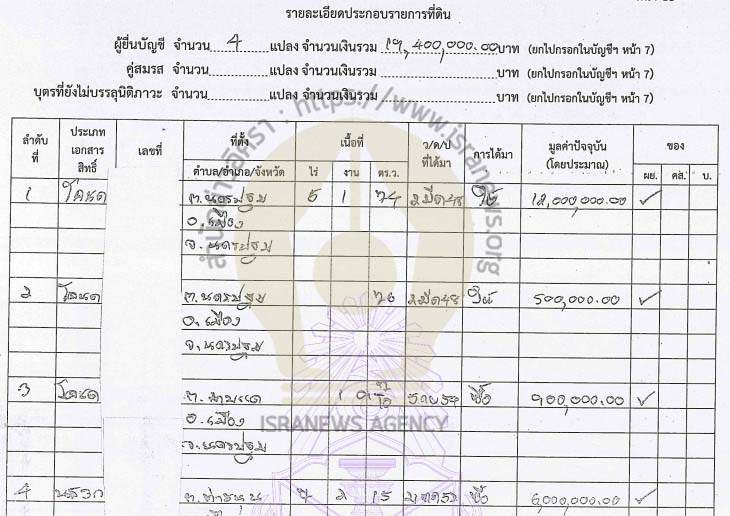 รายละเอียดประกอบรายการที่ดิน
ผู้ยื่นบัญชี จำนวน 4 แปลง จำนวนเงินรวม 19,400,000.00 บาท (ยกไปกรอกในบัญชีฯ หน้า 7)
คู่สมรส จำนวน แปลง จำนวนเงินรวม บาท (ยกไปกรอกในบัญชีฯ หน้า 7)
บุตรที่ยังไม่บรรลุนิติภาวะ จำนวน แปลง จำนวนเงินรวม บาท (ยกไปกรอกในบัญชีฯ หน้า 7)
สำนักข่าวอิศรา : https://www.isranews.org
ลำดับที่ ประเภทเอกสารสิทธิ์ เลขที่ ที่ตั้ง เนื้อที่ ว/ด/ป ที่ได้มา การได้มา มูลค่าปัจจุบัน (โดยประมาณ) ของ
ตำบล/อำเภอ/จังหวัด ไร่ งาน ตร.ว. ผย. คส. บ.
1 โฉนด ต.นครปฐม 5 1 74 ให้ 12,000,000.00 ✓
อ.เมือง
จ.นครปฐม
2 โฉนด ต.นครปฐม ให้ 500,000.00 ✓
อ.เมือง
จ.นครปฐม
3 โฉนด 1 ซื้อ 900,000.00 ✓
อ.เมือง
ISRANEWS AGENCY
จ.นครปฐม
4 2 15 ซื้อ 6,000,000.00 ✓